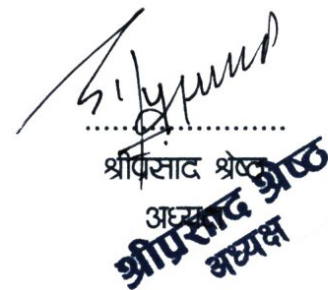 श्रीप्रसाद श्रेष्ठ
अध्यक्ष
श्रीप्रसाद श्रेष्ठ
अध्यक्ष